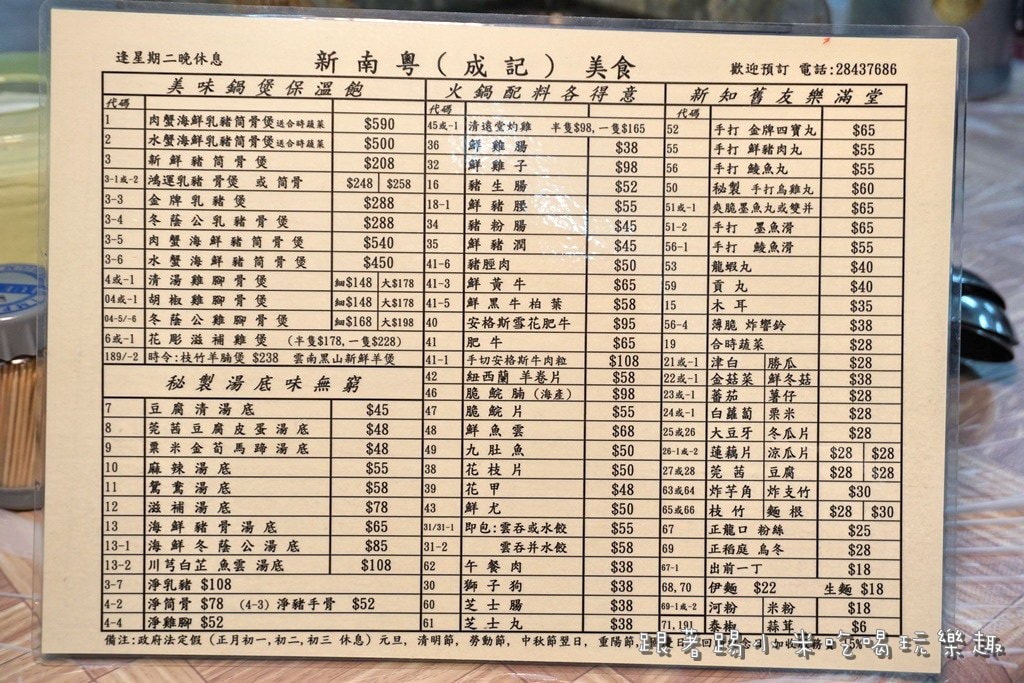 逢星期二晚休息
新南粵(成記)美食
歡迎預訂 電話:28437686
美味鍋煲保溫飽
代碼
1 肉蟹海鮮乳豬筒骨煲送合時蔬菜 $590
2 水蟹海鮮乳豬筒骨煲送合時蔬菜 $500
3 新鮮豬筒骨煲 $208
3-1或-2 鴻運乳豬骨煲 或 筒骨 $248 $258
3-3 金牌乳豬煲 $288
3-4 冬蔭公乳豬骨煲 $288
3-5 肉蟹海鮮豬筒骨煲 $540
3-6 水蟹海鮮豬筒骨煲 $450
4或-1 清湯雞腳骨煲 細$148 大$178
04或-1 胡椒雞腳骨煲 細$148 大$178
04-5/-6 冬蔭公雞腳骨煲 細$168 大$198
6或-1 花彫滋補雞煲 (半隻$178,一隻$228)
189/-2 時令:枝竹羊腩煲 $238 雲南黑山新鮮羊煲
秘製湯底味無窮
7 豆腐清湯底 $45
8 莞茜豆腐皮蛋湯底 $48
9 粟米金荀馬蹄湯底 $48
10 麻辣湯底 $55
11 鴛鴦湯底 $58
12 滋補湯底 $78
13 海鮮豬骨湯底 $65
13-1 海鮮冬蔭公湯底 $85
13-2 川芎白芷魚雲湯底 $108
3-7 淨乳豬 $108
4-2 淨筒骨 $78 (4-3) 淨豬手骨 $52
4-4 淨雞腳 $52
火鍋配料各得意
代碼
45或-1 清遠堂灼雞 半隻$98,一隻$165
36 鮮雞腸 $38
32 鮮雞子 $98
16 豬生腸 $52
18-1 鮮豬腰 $55
34 豬粉腸 $45
35 鮮豬潤 $45
41-6 豬脛肉 $50
41-3 鮮黃牛 $65
41-5 鮮黑牛柏葉 $58
40 安格斯雪花肥牛 $95
41 肥牛 $65
41-1 手切安格斯牛肉粒 $108
42 紐西蘭羊卷片 $58
46 脆鯇腩(海產) $98
47 脆鯇片 $55
48 鮮魚雲 $68
49 九肚魚 $50
38 花枝片 $50
39 花甲 $48
43 鮮尤 $50
31/31-1 即包:雲吞或水餃 $55
31-2 雲吞并水餃 $58
62 午餐肉 $38
30 獅子狗 $38
60 芝士腸 $38
61 芝士丸 $38
新知舊友樂滿堂
代碼
52 手打 金牌四寶丸 $65
55 手打 鮮豬肉丸 $55
56 手打 鯪魚丸 $55
50 秘製 手打烏雞丸 $60
51或-1 爽脆墨魚丸或雙并 $65
51-2 手打 墨魚滑 $65
56-1 手打 鯪魚滑 $55
53 龍蝦丸 $40
59 貢丸 $40
15 木耳 $35
56-4 薄脆 炸響鈴 $38
19 合時蔬菜 $28
21或-1 津白 勝瓜 $28
22或-1 金菇菜 鮮冬菇 $38
23或-1 蕃茄 薯仔 $28
24或-1 白蘿蔔 粟米 $28
25或26 大豆牙 冬瓜片 $28
26-1或-2 蓮藕片 涼瓜片 $28 $28
27或28 莞茜 豆腐 $28 $28
63或64 炸芋角 炸支竹 $30
65或66 枝竹 麵根 $28 $30
67 正龍口粉絲 $25
69 正稻庭烏冬 $28
67-1 出前一丁 $18
68,70 伊麵 $22 生麵 $18
69-1或-2 河粉 米粉 $18
71,191 泰椒 蒜茸 $6
備注:政府法定假(正月初一,初二,初三 休息)元旦, 清明節, 勞動節, 中秋節翌日, 重陽節
跟著踢小米吃喝玩樂趣